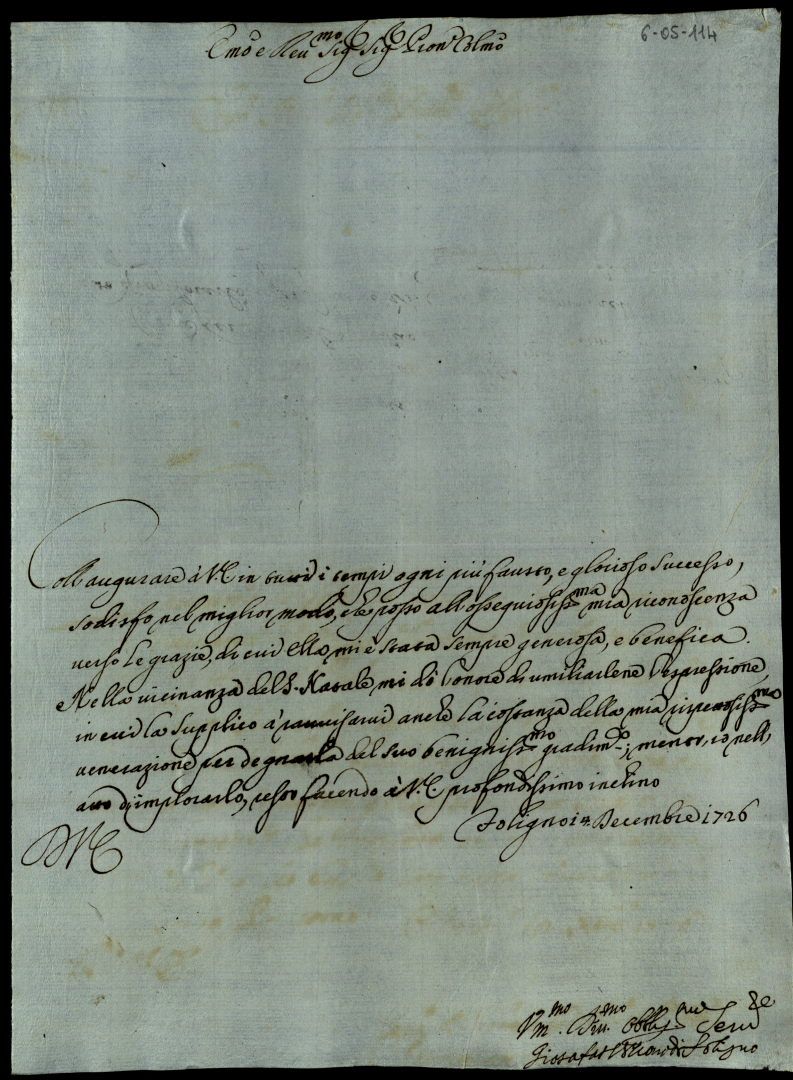 6-05-114
Emo e Reumo Sig. Sig. Pron Colmo
Coll augurare à V.E. in tutti i tempi ogni più fausto, e glorioso successo,
sodisfo nel miglior modo, che posso all ossequiosissma mia riconoscenza
verso le grazie, di cui Ella mi è stata sempre generosa, e benefica.
Nella vicinanza del S. Natale mi dò l'onore di umiliarlene l'espressione,
in cui la supplico à ravvisarvi anche la costanza della mia rispettosissma
venerazione per degnarla del suo benignissmo gradimto; mentre, io nell,
atto d'implorarlo, resto facendo à V.E. profondissimo inchino
Foligno Decembre 1726
D V E
Vmmo Diumo Obblig Seru
Giosafat Vescovo di Foligno